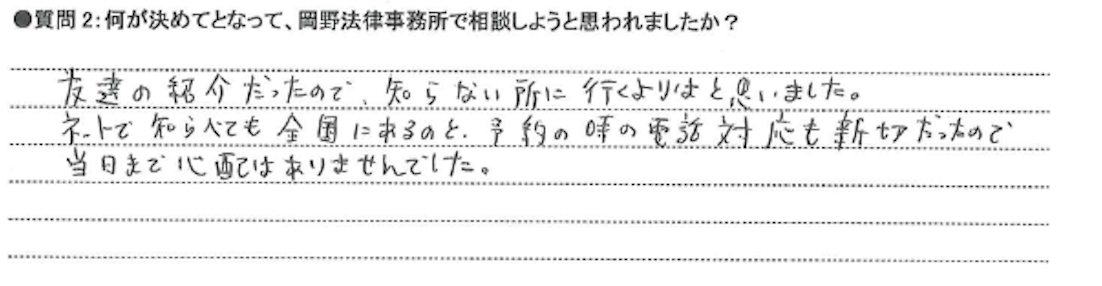 ●質問2:何が決めてとなって、岡野法律事務所で相談しようと思われましたか？
友達の紹介だったので、知らない所に行くよりはと思いました。
ネットで知らべても全国にあるのと、予約の時の電話対応も新切だったので
当日まで心配はありませんでした。